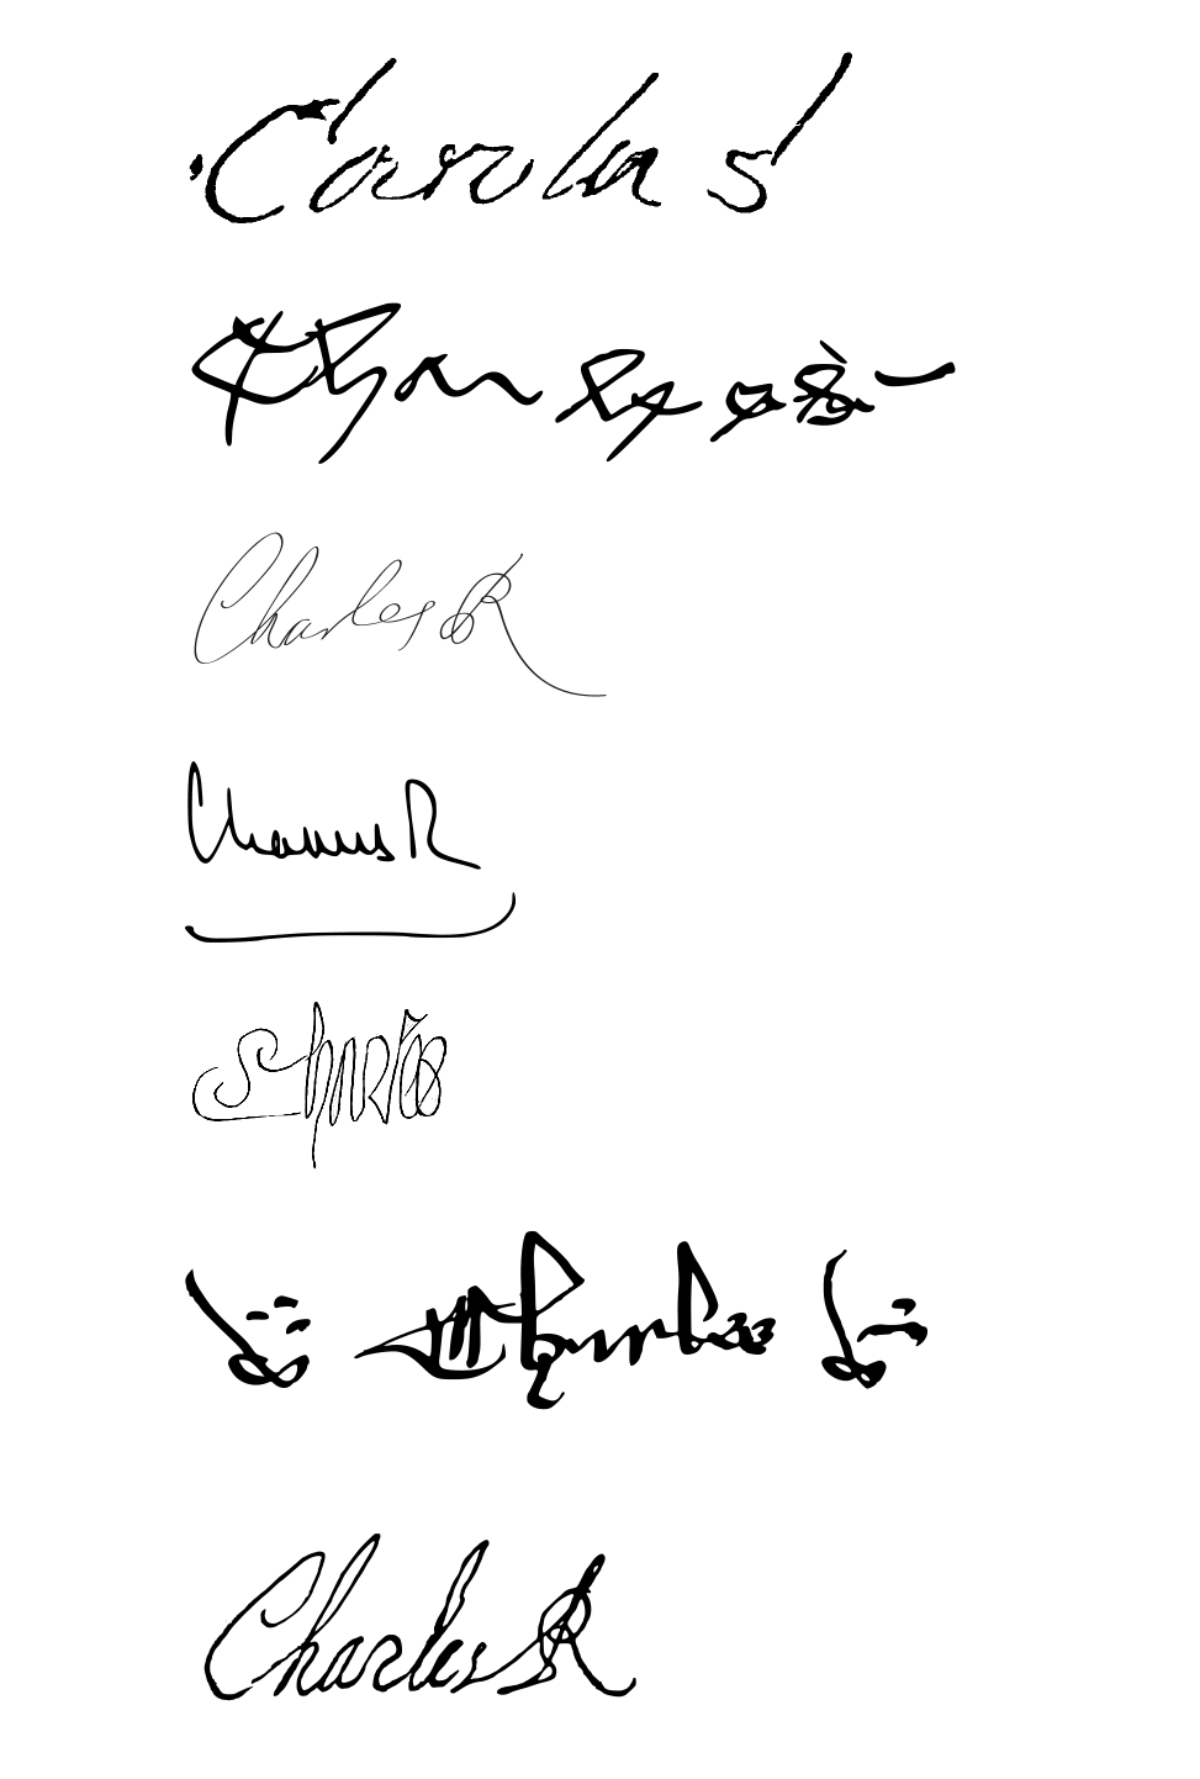 Carolus
Charles R
Charles R
Charles
Charles
Charles R